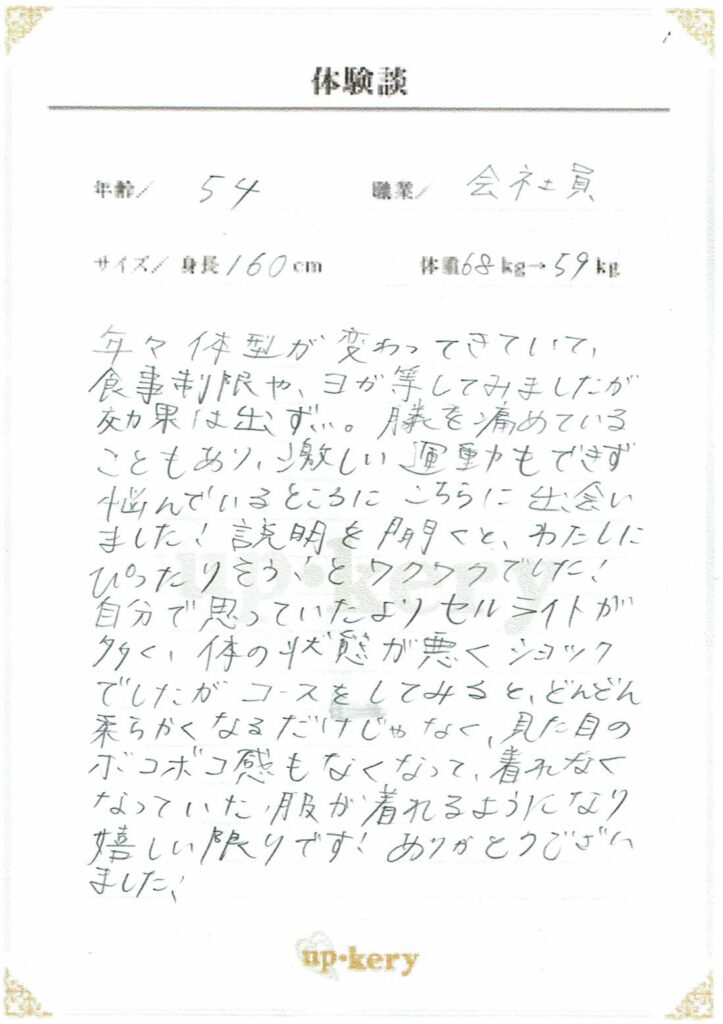 体験談
年齢/ 54 職業/ 会社員
サイズ/ 身長 160 cm 体重 68 kg→ 59 kg
年々体型が変わってきていて、
食事制限や、ヨガ等してみましたが
効果は出ず…。膝を痛めている
こともあり、激しい運動もできず
悩んでいるところにこちらに出会い
ました！説明を聞くと、わたしに
ぴったりそう！とワクワクでした！
自分で思っていたよりセルライトが
多く、体の状態が悪くショック
でしたがコースをしてみると、どんどん
柔らかくなるだけじゃなく、見た目の
ボコボコ感もなくなって、着れなく
なっていた服が着れるようになり
嬉しい限りです！ありがとうござい
ました！
up・kery
up・kery